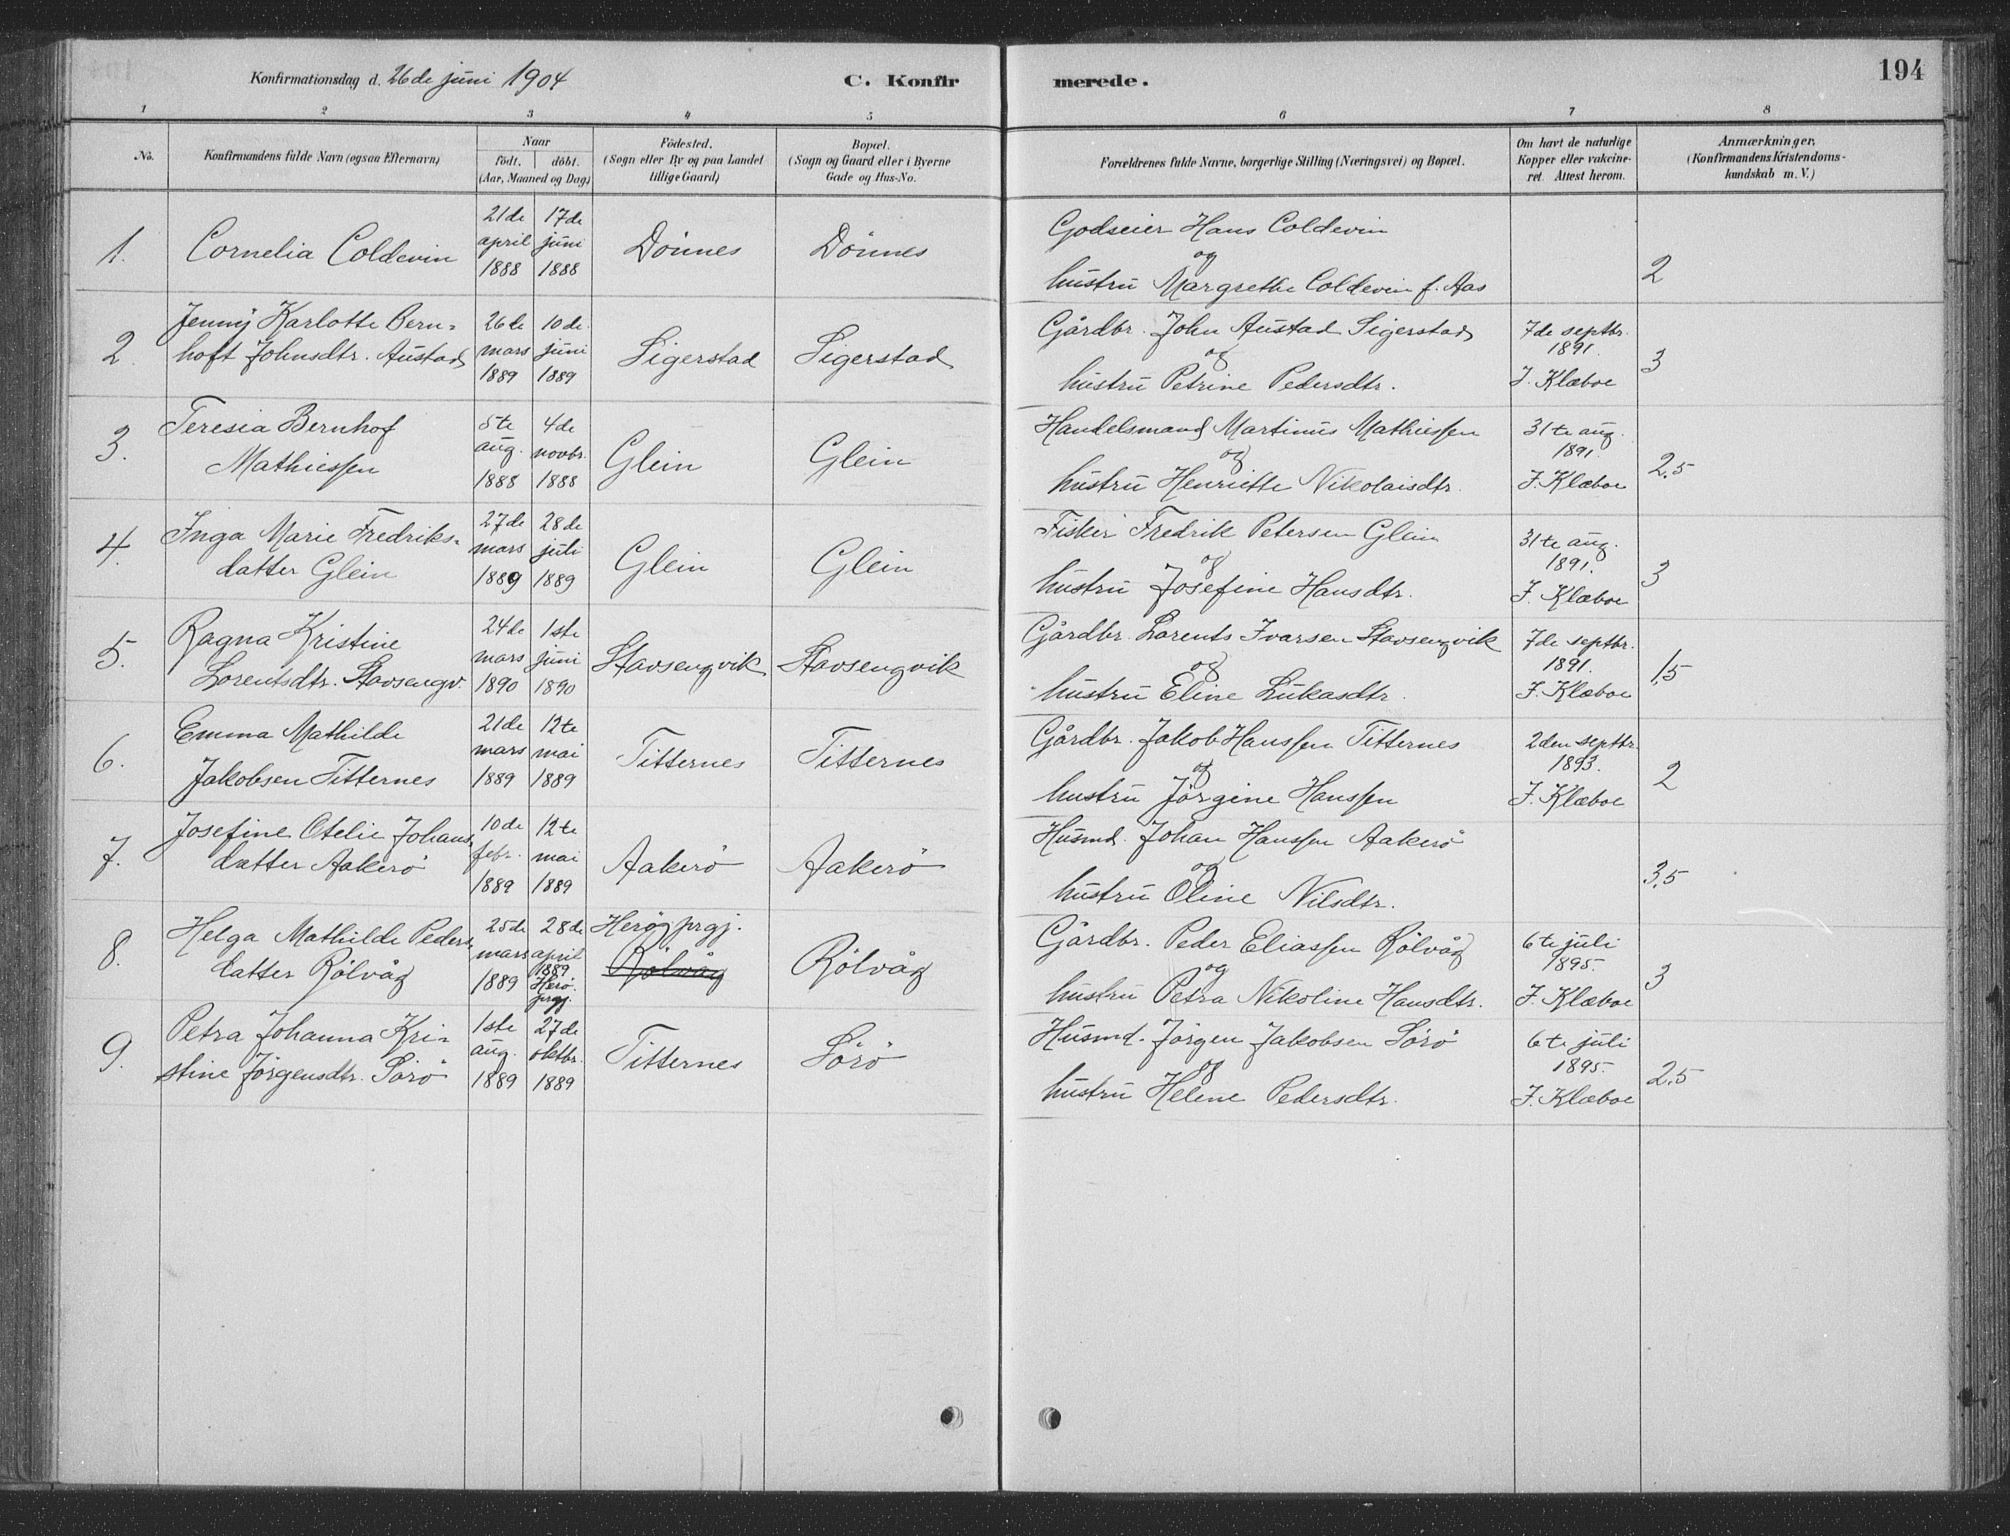 Konfirmationsdag d. 26de juni 1904
C. Konfirmerede.
194
1 2 3 4 5 6 7 8
No.
Konfirmandens fulde Navn (ogsaa Efternavn)
Naar
födt. döbt.
(Aar, Maaned og Dag)
Födested.
(Sogn eller By og paa Landet
tillige Gaard)
Bopæl.
(Sogn og Gaard eller i Byerne
Gade og Hus-No.
Forældrenes fulde Navne, borgerlige Stilling (Næringsvei) og Bopæl.
Om havt de naturlige
Kopper eller vakcine-
ret. Attest herom.
Anmærkninger.
(Konfirmandens Kristendoms-
kundskab m. V.)
1. Cornelia Coldevin
21de april 1888
17de juni 1888
Dönnes
Dönnes
Godseier Hans Coldevin
og
hustru Margrethe Coldevin f. Aas
2
2. Jenny Karlotte Bern-
hoft Johnsdtr. Austad
26de mars 1889
10de juni 1889
Sigerstad
Sigerstad
Gårdbr. John Austad Sigerstad
og
hustru Petrine Pedersdtr.
7de septbr.
1891.
J. Klæboe
3
3. Teresia Bernhof
Mathiessen
5te aug. 1888
4de novbr. 1888
Glein
Glein
Handelsmand Martinus Mathiessen
og
hustru Henriette Nikolaisdtr.
31te aug.
1891.
J. Klæboe
2,5
4. Inga Marie Fredriks-
datter Glein
27de mars 1889
28de juli 1889
Glein
Glein
Fisker Fredrik Petersen Glein
og
hustru Josefine Hansdtr.
31te aug.
1891.
J. Klæboe
3
5. Ragna Kristine
Lorentsdtr. Stavsengv.
24de mars 1890
1ste juni 1890
Stavsengvik
Stavsengvik
Gårdbr. Lorents Ivarsen Stavsengvik
og
hustru Eline Lukasdtr.
7de septbr.
1891.
J. Klæboe
1,5
6. Emma Mathilde
Jakobsen Titternes
21de mars 1889
12te mai 1889
Titternes
Titternes
Gårdbr. Jakob Hanssen Titternes
og
hustru Jörgine Hanssen
2den septbr.
1893.
J. Klæboe
2
7. Josefine Otelie Johans
datter Aakerö
10de febr. 1889
12te mai 1889
Aakerö
Aakerö
Husmd. Johan Hanssen Aakerö
og
hustru Oline Nilsdtr.
3,5
8. Helga Mathilde Peders-
datter Rölvåg
25de mars 1889
28de april 1889 Herö prgj.
Heröy prgj.
Rölvåg
Rölvåg
Gårdbr. Peder Eliassen Rölvåg
og
hustru Petra Nikoline Hansdtr.
6te juli
1895.
J. Klæboe
3
9. Petra Johanna Kri-
stine Jörgensdtr. Sörö
1ste aug. 1889
27de oktbr. 1889
Titternes
Sörö
Husmd. Jörgen Jakobsen Sörö
og
hustru Helene Pedersdtr.
6te juli
1895.
J. Klæboe
2,5